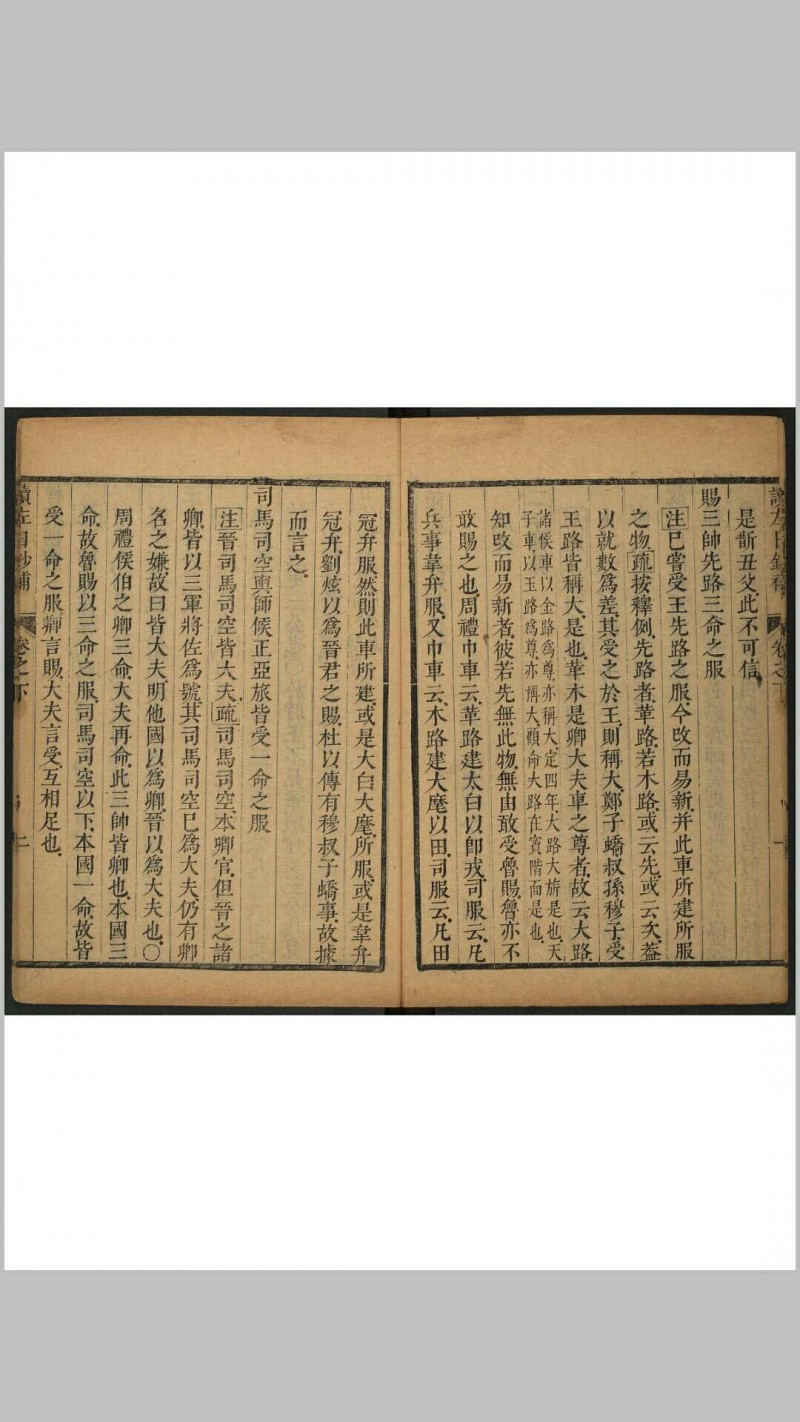 是斮丑父此不可信
賜三帥先路三命之服
注已嘗受王先路之服今改而易新并此車所建所服
之物疏按釋例先路者革路若木路或云先或云次蓋
以就數為差其受之於王則稱大鄭子蟜叔孫穆子受
王路皆稱大是也革木是卿大夫車之尊者故云大路
諸侯車以金路為尊亦稱大定四年大路大旂是也天
子車以玉路為尊亦稱大顧命大路在賓階面是也
知改而易新者彼若先無此物無由敢受魯賜魯亦不
敢賜之也周禮巾車云革路建太白以卽戎司服云凡
兵事韋弁服又巾車云木路建大麾以田司服云凡田
冠弁服然則此車所建或是大白大麾所服或是韋弁
冠弁劉炫以為晉君之賜杜以傳有穆叔子蟜事故據
而言之
司馬司空輿師候正亞旅皆受一命之服
注晉司馬司空皆大夫疏司馬司空本卿官但晉之諸
卿皆以三軍將佐為號其司馬司空已為大夫仍有卿
名之嫌故曰皆大夫明他國以為卿晉以為大夫也〇
周禮侯伯之卿三命大夫再命此三帥皆卿也本國三
命故魯賜以三命之服司馬司空以下本國一命故皆
受一命之服卿言賜大夫言受互相足也
讀左日鈔補 卷之下 二